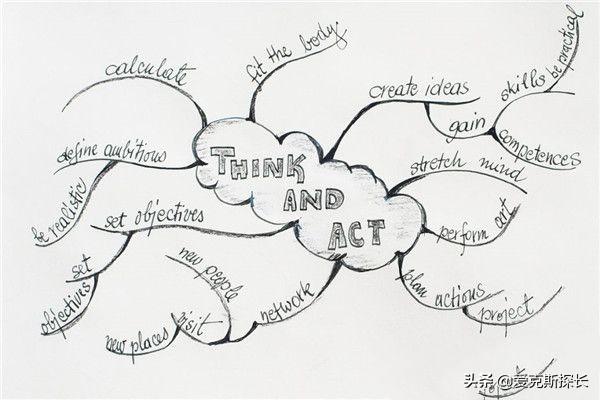 fit the body
calculate
create ideas
skills
be practical
gain
competences
define ambitious
be realistic
THINK
AND
ACT
stretch mind
perform art
set objectives
set
objectives
new people
visit
new places
network
plan actions
project
头条 @爱克斯探长